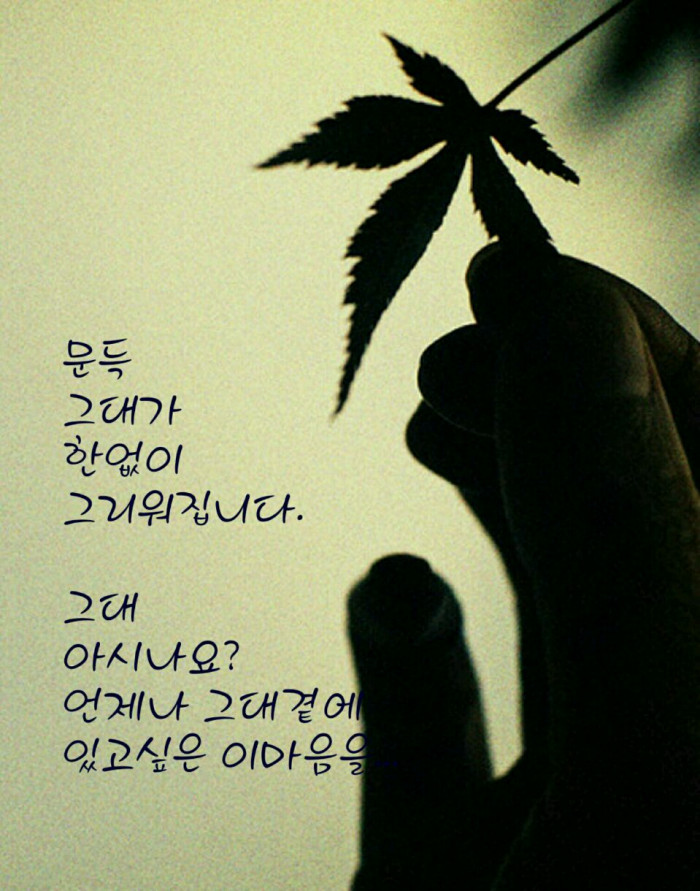 문득
그대가
한없이
그리워집니다.
그대
아시나요?
언제나 그대곁에
있고싶은 이마음을...